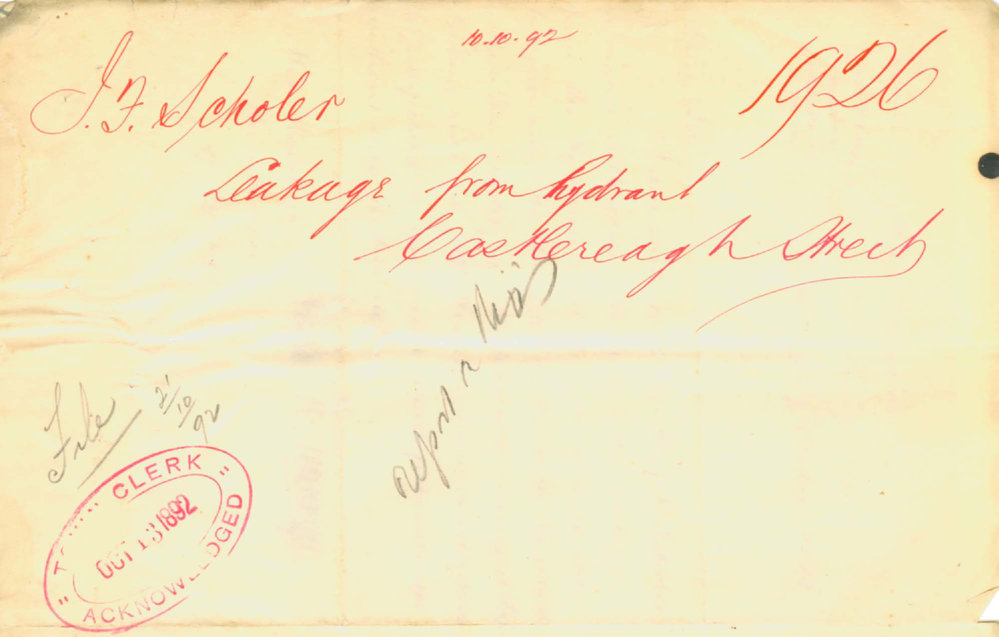 10.10.92
1926
J. F. Scholer
Leakage from hydrant
Castlereagh Street
report
File
21/10/92
"TOWN CLERK"
OCT 13 1892
ACKNOWLEDGED